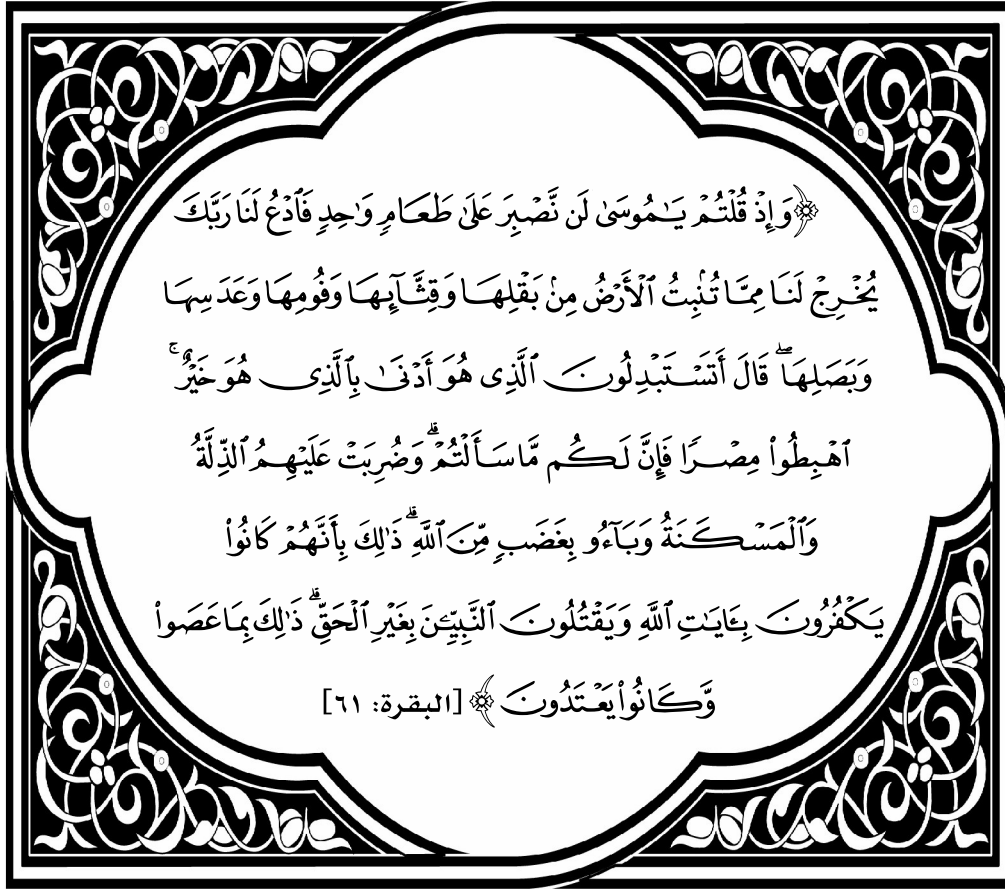 ﴿وَإِذۡ قُلۡتُمۡ يَٰمُوسَىٰ لَن نَّصۡبِرَ عَلَىٰ طَعَامٖ وَٰحِدٖ فَٱدۡعُ لَنَا رَبَّكَ
يُخۡرِجۡ لَنَا مِمَّا تُنۢبِتُ ٱلۡأَرۡضُ مِنۢ بَقۡلِهَا وَقِثَّآئِهَا وَفُومِهَا وَعَدَسِهَا
وَبَصَلِهَاۖ قَالَ أَتَسۡتَبۡدِلُونَ ٱلَّذِي هُوَ أَدۡنَىٰ بِٱلَّذِي هُوَ خَيۡرٌۚ
ٱهۡبِطُواْ مِصۡرٗا فَإِنَّ لَكُم مَّا سَأَلۡتُمۡۗ وَضُرِبَتۡ عَلَيۡهِمُ ٱلذِّلَّةُ
وَٱلۡمَسۡكَنَةُ وَبَآءُو بِغَضَبٖ مِّنَ ٱللَّهِۗ ذَٰلِكَ بِأَنَّهُمۡ كَانُواْ
يَكۡفُرُونَ بِـَٔايَٰتِ ٱللَّهِ وَيَقۡتُلُونَ ٱلنَّبِيِّـۧنَ بِغَيۡرِ ٱلۡحَقِّۗ ذَٰلِكَ بِمَا عَصَواْ
وَّكَانُواْ يَعۡتَدُونَ﴾ [البقرة: ٦١]